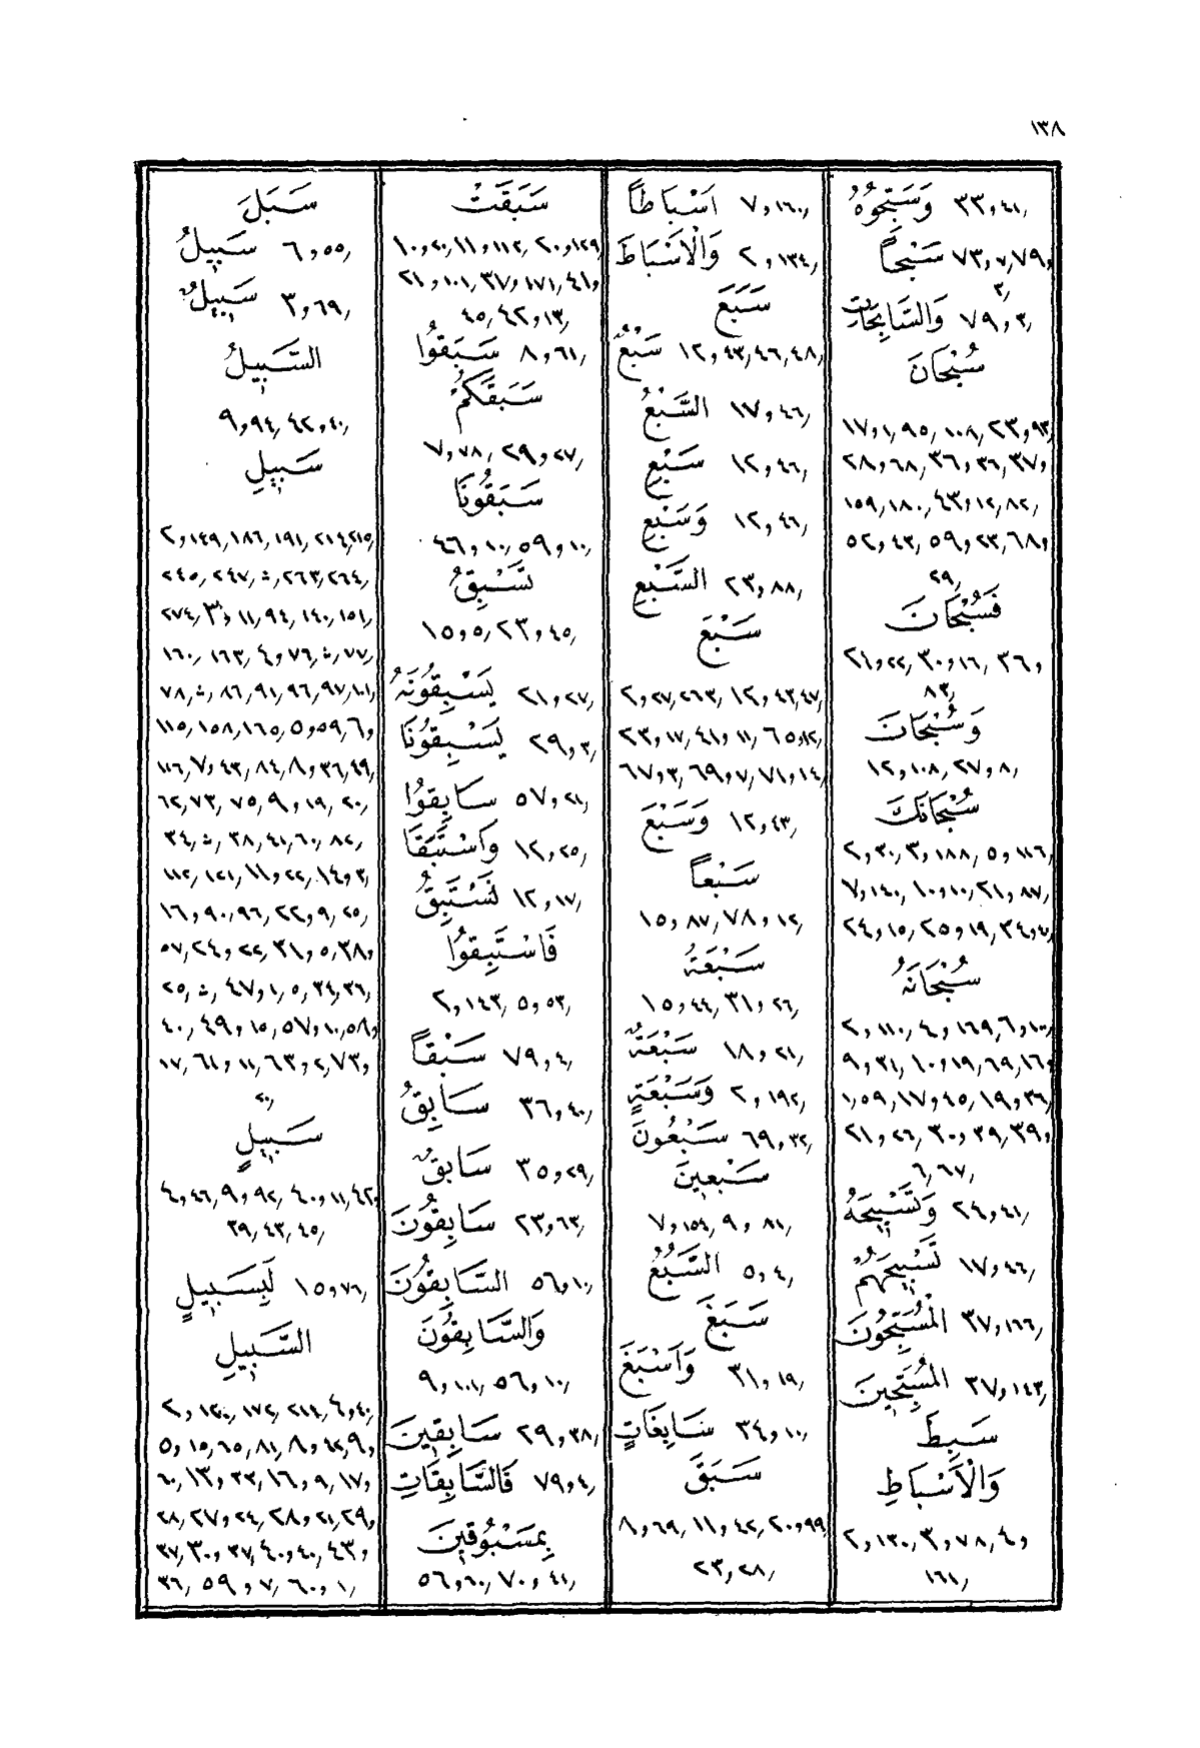 ١٣٨
وَسَبِّحُوهُ ٣٣,٤١,
سَبْحًا ٧٣,٧,٧٩,
٣,
وَالسَّابِحَاتِ ٧٩,٣,
سُبْحَانَ
١٧,١,٩٥,١٠٨,٢٣,٩٣,
٢٨,٦٨,٣٦,٣٦,٣٧,
١٥٩,١٨٠,٤٣,١٢,٨٢,
٥٢,٤٣,٥٩,٢٣,٦٨,
٢٩,
فَسُبْحَانَ
٢١,٢٢,٣٠,١٦,٣٦,
٨٣,
وَسُبْحَانَ
١٢,١٠٨,٢٧,٨,
سُبْحَانَكَ
٢,٣٠,٣,١٨٨,٥,١١٦,
٧,١٤٠,١٠,١٠,٢١,٨٧,
٢٤,١٥,٢٥,١٩,٣٤,٤٠,
سُبْحَانَهُ
٢,١١٠,٤,١٦٩,٦,١٠٠,
٩,٣١,١٠,١٩,٦٩,١٦,
١,٥٩,١٧,٤٥,١٩,٣٦,
٢١,٢٦,٣٠,٣٩,٣٩,
٦,٦٧,
وَتَسْبِيحَهُ ٢٤,٤١,
تَسْبِيحَهُمْ ١٧,٤٦,
الْمُسَبِّحُونَ ٣٧,١٦٦,
الْمُسَبِّحِينَ ٣٧,١٤٣,
سَبِطَ
وَالْأَسْبَاطِ
٢,١٣٠,٣,٧٨,٤,
١٦١,
أَسْبَاطًا ٧,١٦٠,
وَالْأَسْبَاطَ ٢,١٣٤,
سَبَعَ
سَبْعُ ١٢,٤٣,٤٦,٤٨,
السَّبْعُ ١٧,٤٦,
سَبْعِ ١٢,٤٦,
وَسَبْعِ ١٢,٤٦,
السَّبْعِ ٢٣,٨٨,
سَبْعَ
٢,٢٧,٢٦٣,١٢,٤٣,٤٧,
٢٣,١٧,٤١,١١,٦٥,١٢,
٦٧,٣,٦٩,٧,٧١,١٤,
وَسَبْعَ ١٢,٤٣,
سَبْعًا
١٥,٨٧,٧٨,١٢,
سَبْعَةُ
١٥,٤٤,٣١,٢٦,
سَبْعَةٌ ١٨,٢١,
وَسَبْعَةٍ ٢,١٩٢,
سَبْعُونَ ٦٩,٣٢,
سَبْعِينَ
٧,١٥٤,٩,٨١,
السَّبُعُ ٥,٤,
سَبَغَ
وَأَسْبَغَ ٣١,١٩,
سَابِغَاتٍ ٣٤,١٠,
سَبَقَ
٨,٦٩,١١,٤٢,٢٠,٩٩,
٢٣,٢٨,
سَبَقَتْ
١٠,٢٠,١١,١١٢,٢٠,١٢٩,
٢١,١٠١,٣٧,١٧١,٤١,
٤٥,٤٢,١٣,
سَبَقُوا ٨,٦١,
سَبَقَكُمْ
٧,٧٨,٢٩,٢٧,
سَبَقُونَا
٤٦,١٠,٥٩,١٠,
تَسْبِقُ
١٥,٥,٢٣,٤٥,
يَسْبِقُونَهُ ٢١,٢٧,
يَسْبِقُونَا ٢٩,٣,
سَابِقُوا ٥٧,٢١,
وَاسْتَبَقَا ١٢,٢٥,
نَسْتَبِقُ ١٢,١٧,
فَاسْتَبِقُوا
٢,١٤٣,٥,٥٣,
سَبْقًا ٧٩,٤,
سَابِقُ ٣٦,٤٠,
سَابِقٌ ٣٥,٢٩,
سَابِقُونَ ٢٣,٦٣,
السَّابِقُونَ ٥٦,١٠,
وَالسَّابِقُونَ
٩,١٠١,٥٦,١٠,
سَابِقِينَ ٢٩,٣٨,
فَالسَّابِقَاتِ ٧٩,٤,
بِمَسْبُوقِينَ
٥٦,٦٠,٧٠,٤١,
سَبَلَ
سَبِيلُ ٦,٥٥,
سَبِيلٌ ٣,٦٩,
السَّبِيلُ
٩,٩٤,٤٢,٤٠,
سَبِيلِ
٢,١٤٩,١٨٦,١٩١,٢١٤,٢١٥,
٢٤٥,٢٤٧,ث,٢٦٣,٢٦٤,
٢٧٤,٣,١١,٩٤,١٤٠,١٥١,
١٦٠,١٦٣,٤,٧٦,ث,٧٧,
٧٨,ث,٨٦,٩١,٩٦,٩٧,١٠١,
١١٥,١٥٨,١٦٥,٥,٥٩,٦,
١١٦,٧,٤٣,٨٤,٨,٣٦,٤٩,
٦٢,٧٣,٧٥,٩,١٩,٢٠,
٣٤,ث,٣٨,٤١,٦٠,٨٢,
١١٢,١٢١,١١,٢٢,١٤,٣,
١٦,٩٠,٩٦,٢٢,٩,٢٥,
٥٧,٢٤,٢٢,٣١,٥,٣٨,
٢٥,ث,٤٧,١,٥,٣٤,٣٦,
٤٠,٤٩,١٥,٥٧,١٠,٥٨,
١٧,٦١,١١,٦٣,٢,٧٣,
٢٠,
سَبِيلٍ
٤,٤٦,٩,٩٢,٤٠,١١,٤٢,
٣٩,٤٣,٤٥,
لَبِسَبِيلٍ ١٥,٧٦,
السَّبِيلِ
٢,١٢٠,١٧٢,٢١٤,٤,٤٠,
٥,١٥,٦٥,٨١,٨,٤٢,٩,
٦٠,١٣,٣٣,١٦,٩,١٧,
٢٨,٢٧,٢٤,٢٨,٢١,٢٩,
٣٧,٣٠,٣٧,٤٠,٤٠,٤٣,
٣٦,٥٩,٧,٦٠,١,